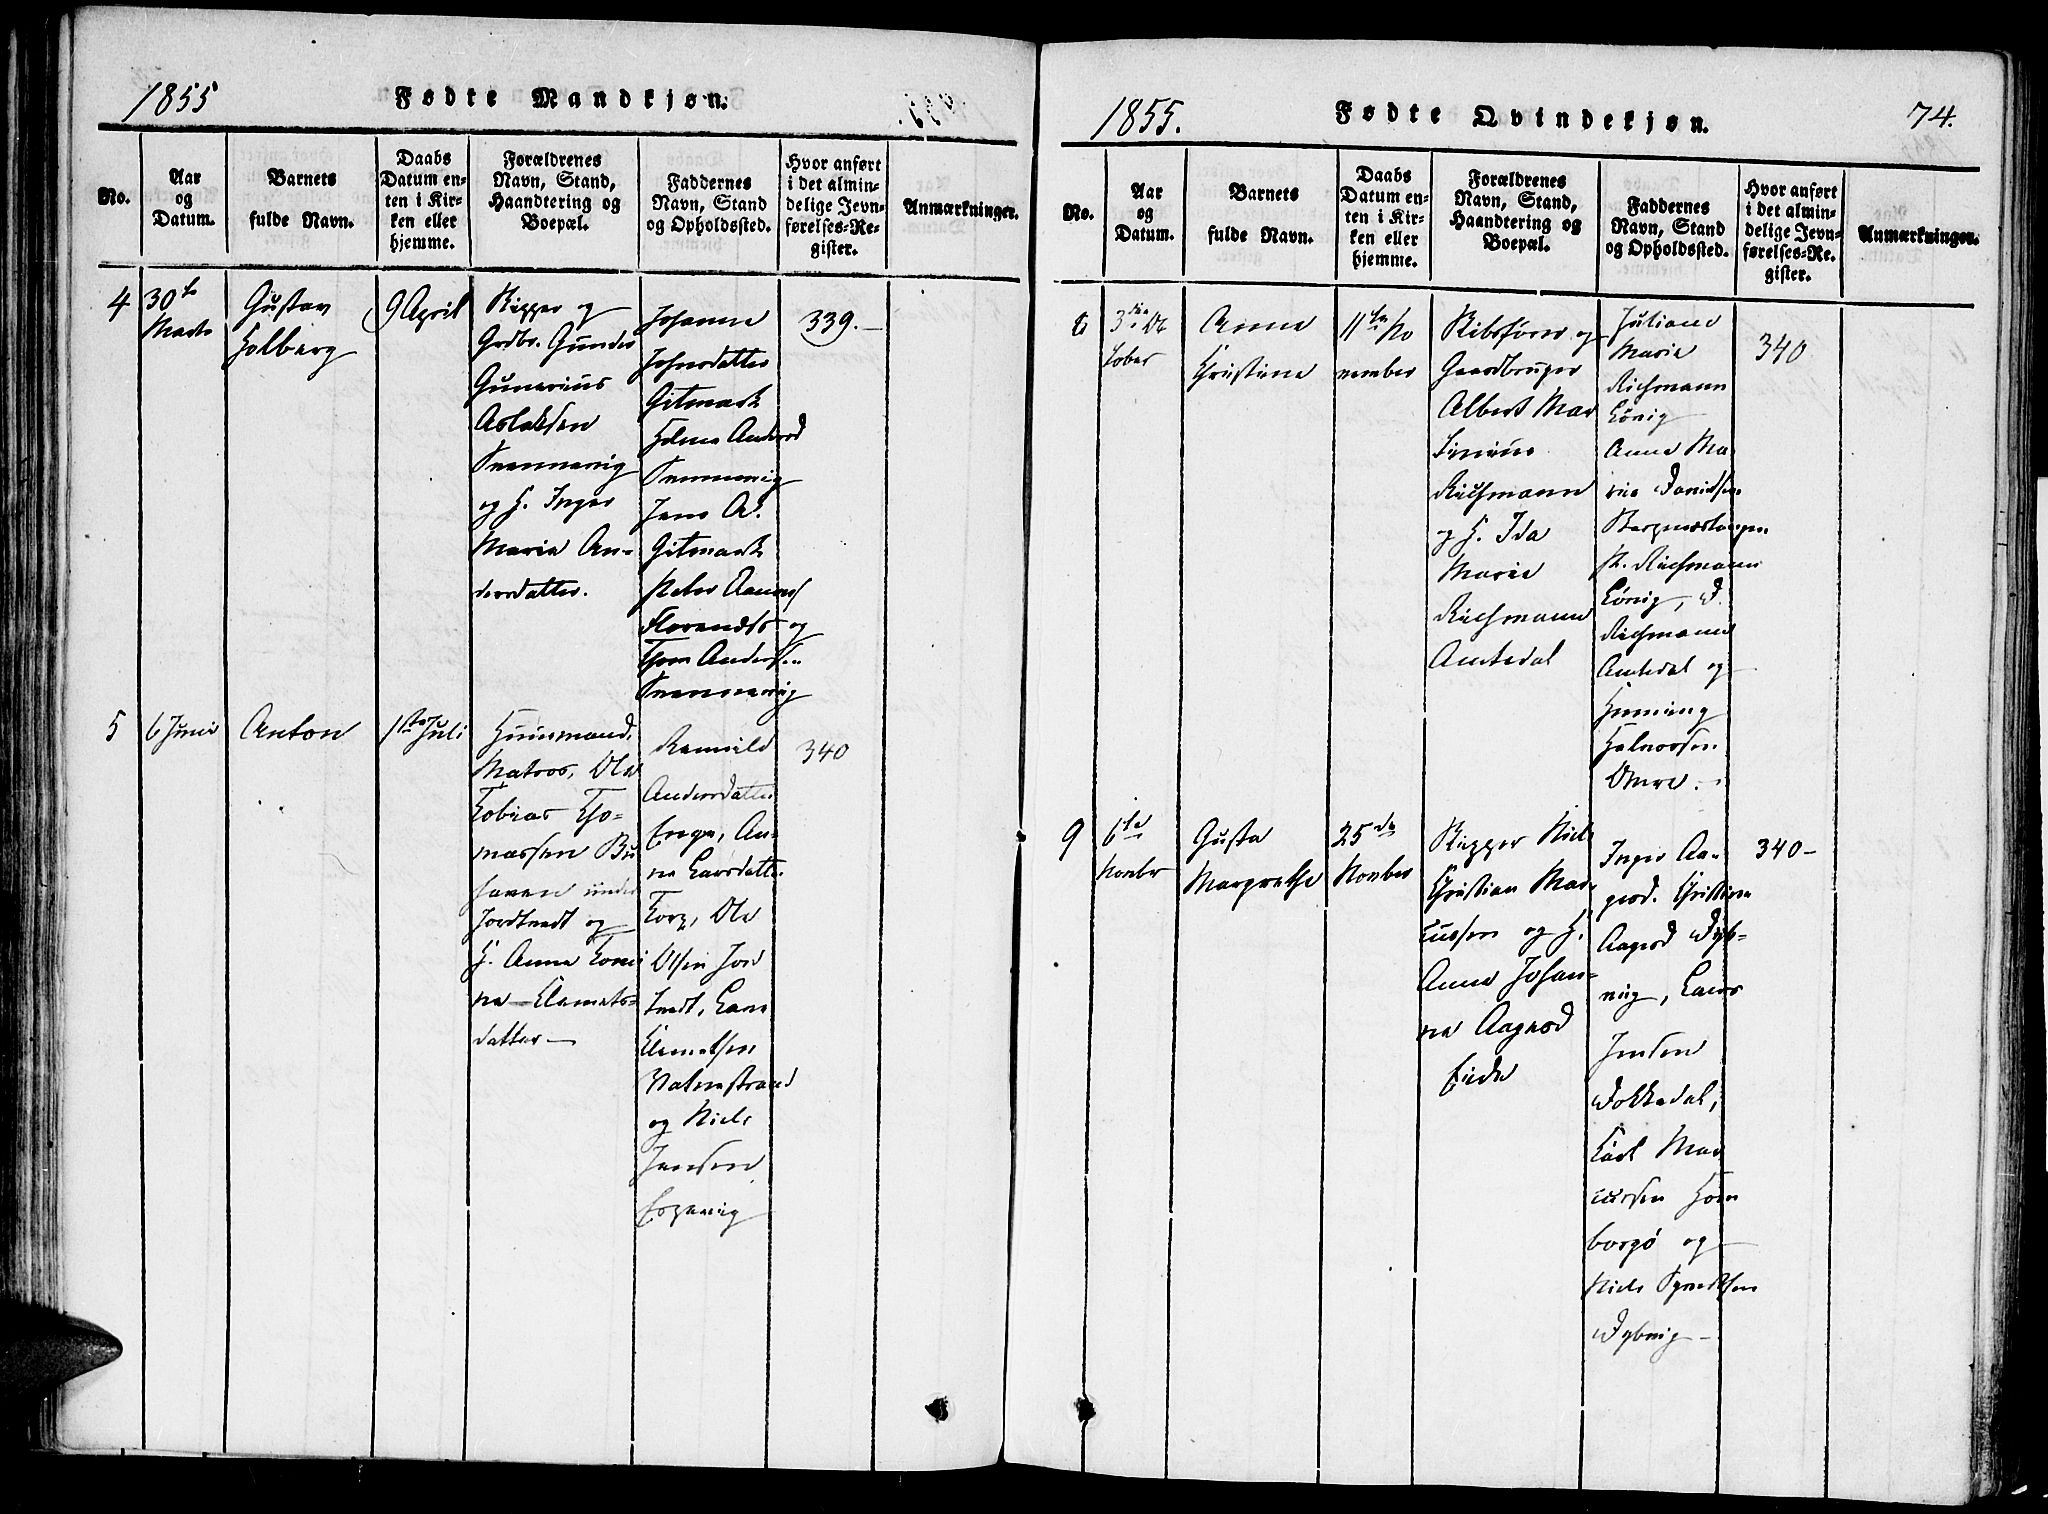 1855
Fødte Mandkjøn.
No.
Aar
og
Datum.
Barnets
fulde Navn.
Daabs
Datum en-
ten i Kir-
ken eller
hjemme.
Forældrenes
Navn, Stand,
Haandtering og
Boepæl.
Faddernes
Navn, Stand
og Opholdssted.
Hvor anført
i det almin-
delige Jevn-
førelses-Re-
gister.
Anmærkninger.
4
30te
Marts
Gustav
Holberg
9 April
Skipper og
Grdbr. Gunder
Gunerius
Aslaksen
og H. Inger
Maria An-
dersdatter.
Johanne
Johnsdatter
Gitmark
Jens A.
Gitmark
Peter
og
Thom Andersen
339.
5
6 Juni
Anton
1ste Juli
Huusmand,
Matros, Ole
Tobias Tho-
massen Bu
haven under
Jortveit og
H. Anne
ne Clemets-
datter
Ramild
Andersdatter
An-
ne Larsdatter
Torp, Ole
Olsen Jor
tvedt, Lars
Clemetsen
og Niels
Jensen
340
1855.
Fødte Qvindekjøn.
74.
No.
Aar
og
Datum.
Barnets
fulde Navn.
Daabs
Datum en-
ten i Kir-
ken eller
hjemme.
Forældrenes
Navn, Stand,
Haandtering og
Boepæl.
Faddernes
Navn, Stand
og Opholdssted.
Hvor anført
i det almin-
delige Jevn-
førelses-Re-
gister.
Anmærkninger.
8
3die Oc
tober
Anne
Christine
11te No
vember
Skibsfører og
Gaardbruger
Albert Mar
Richmann
og H. Ida
Marie
Richmann
Amtedal
Juliane
Marie
Richmann
Lövig
Anne Ma
rie Danielsen
P. Richmann
Lövig, D.
Richmann
Amtedal og
Henning
Halvorsen
Omre.
340
9
6te
Novbr
Gusta
Margrethe
25de
Novber
Skipper Niels
Christian Mar-
cussen og H.
Anne Johan-
ne Aagerød
Eide
Inger Aa-
gerød. Christine
Aagerød Dyb-
vig, Lars
Jensen
Dokkedal,
Carl Mar
cussen Hom
borgö og
Niels
Dybvig
340